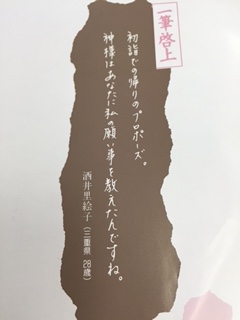 一筆啓上
初詣での帰りのプロポーズ。
神様はあなたに私の願い事を教えたんですね。
酒井里絵子（三重県 28歳）